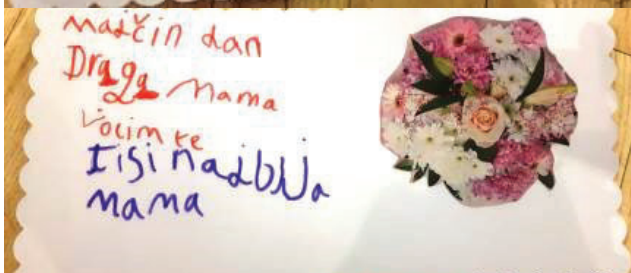 majčin dan
Draga mama
vocim te
I si najbUa
mama